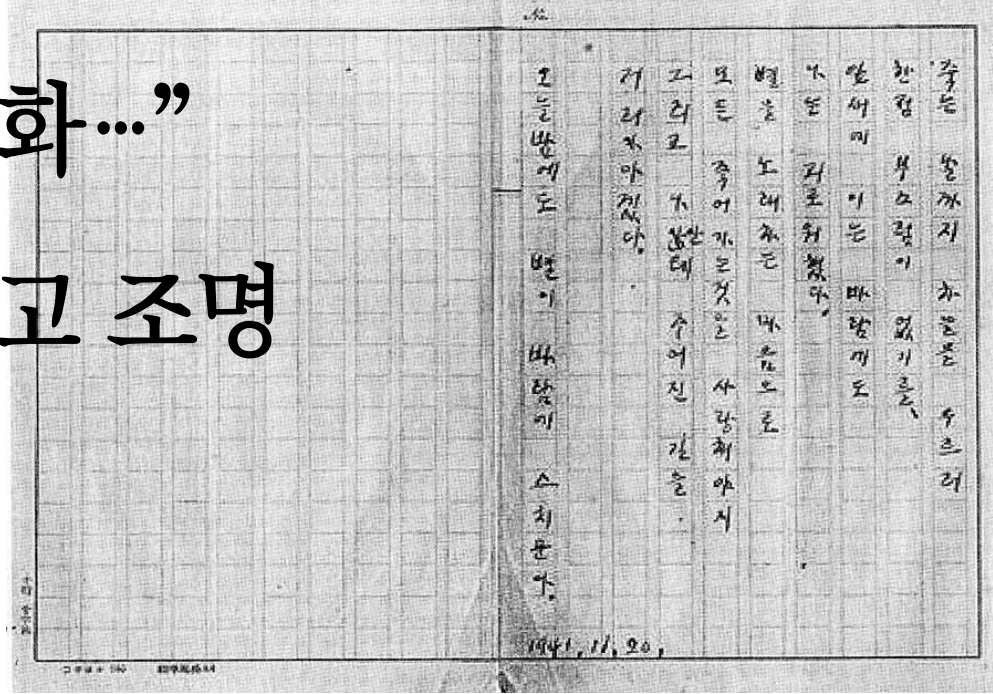 화…”
고 조명
No.
죽는 날까지 하늘을 우르러
한점 부끄럼이 없기를,
잎새에 이는 바람에도
나는 괴로워했다.
별을 노래하는 마음으로
모든 죽어가는것을 사랑해야지
그리고 나안테 주어진 길을
거러가야겠다.
오늘밤에도 별이 바람에 스치운다.
1941, 11, 20,